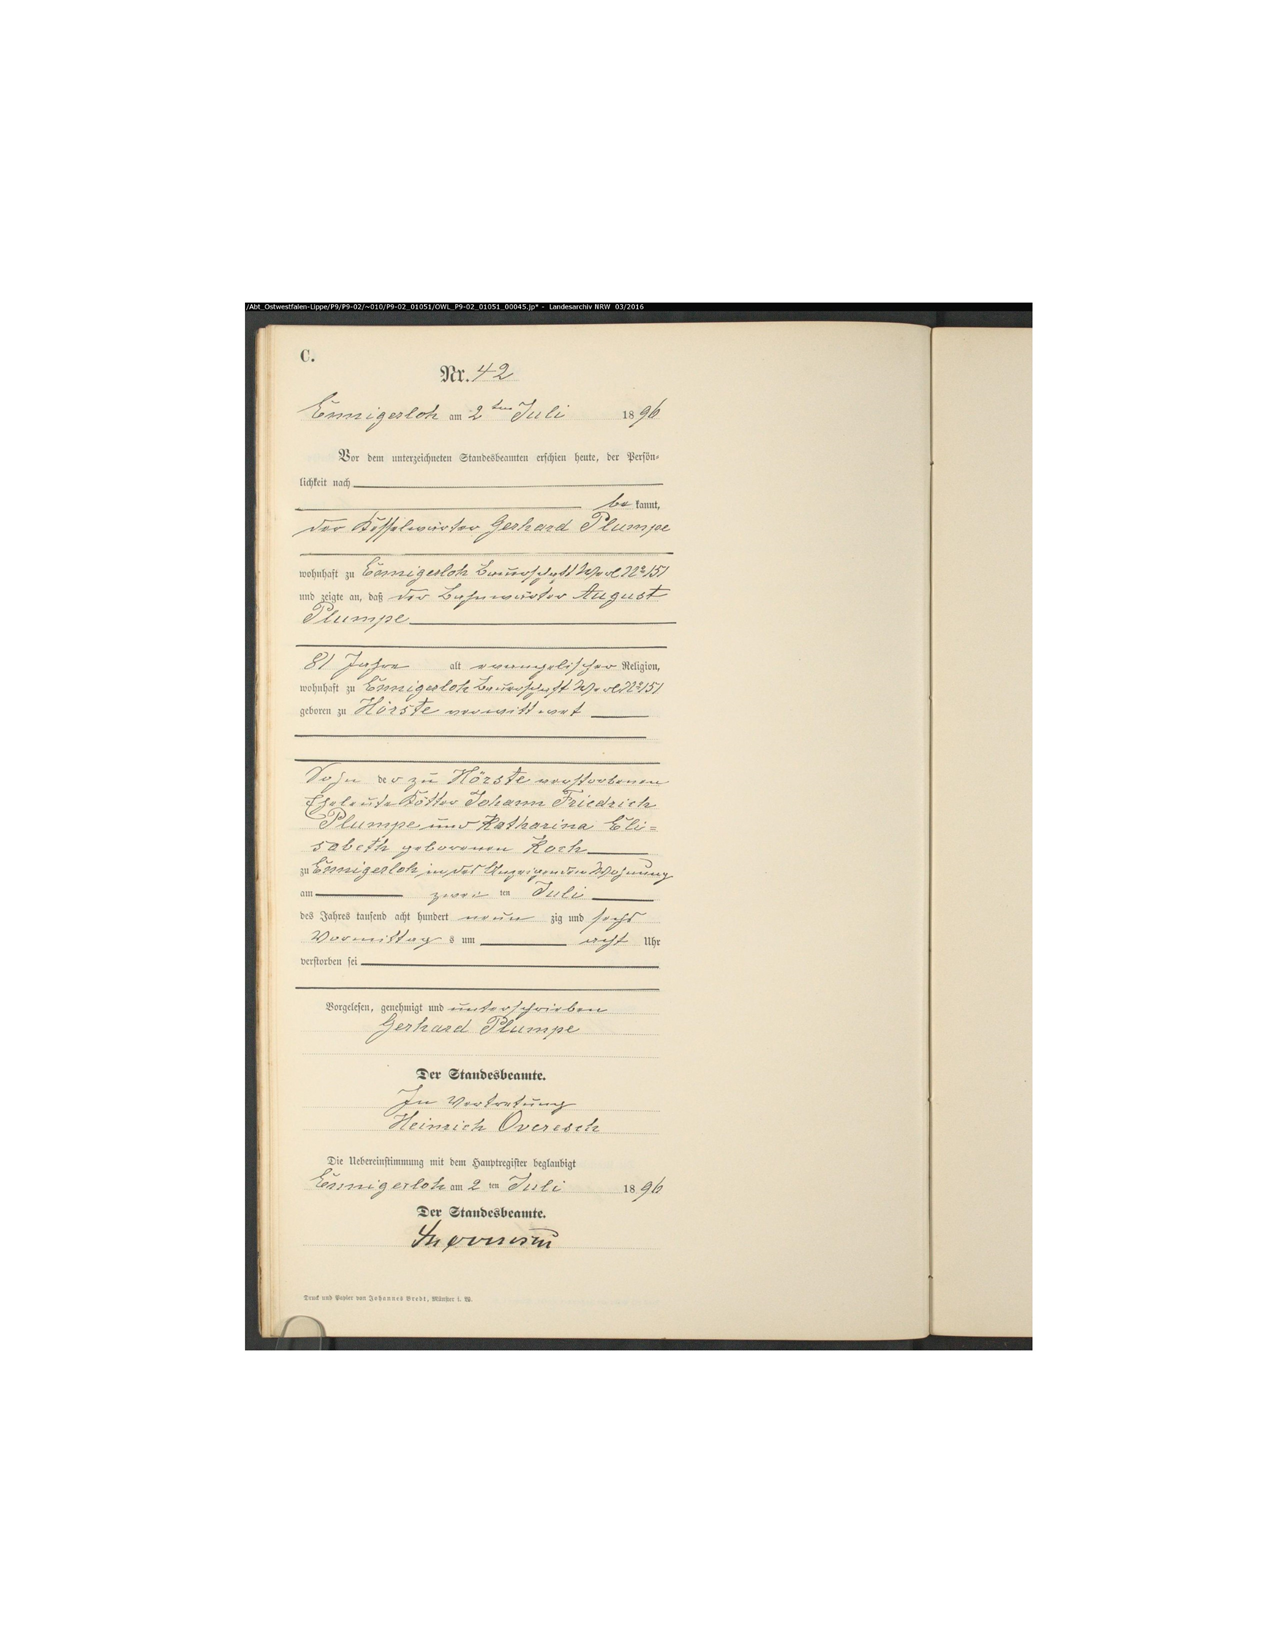 /Abt_Ostwestfalen-Lippe/P9/P9-02/~010/P9-02_01051/OWL_P9-02_01051_00045.jp* - Landesarchiv NRW 03/2016
C.
Nr. 42
Ennigerloh am 2ten Juli 1896
Vor dem unterzeichneten Standesbeamten erschien heute, der Persön-
lichkeit nach
be kannt,
der Kesselwärter Gerhard Plumpe
wohnhaft zu Ennigerloh Bauerschaft Werl No 151
und zeigte an, daß der Bahnwärter August
Plumpe
81 Jahre alt evangelischer Religion,
wohnhaft zu Ennigerloh Bauerschaft Werl No 151
geboren zu Hörste verwittwet
Sohn der zu Hörste verstorbenen
Eheleute Kötter Johann Friedrich
Plumpe und Katharina Eli=
sabeth geborenen Koch
zu Ennigerloh in des Anzeigenden Wohnung
am zwei ten Juli
des Jahres tausend acht hundert neun zig und sechs
Vormittag s um acht Uhr
verstorben sei
Vorgelesen, genehmigt und unterschrieben
Gerhard Plumpe
Der Standesbeamte.
In Vertretung
Heinrich Overesch
Die Uebereinstimmung mit dem Hauptregister beglaubigt
Ennigerloh am 2 ten Juli 1896
Der Standesbeamte.
Druck und Papier von Johannes Bredt, Münster i. W.